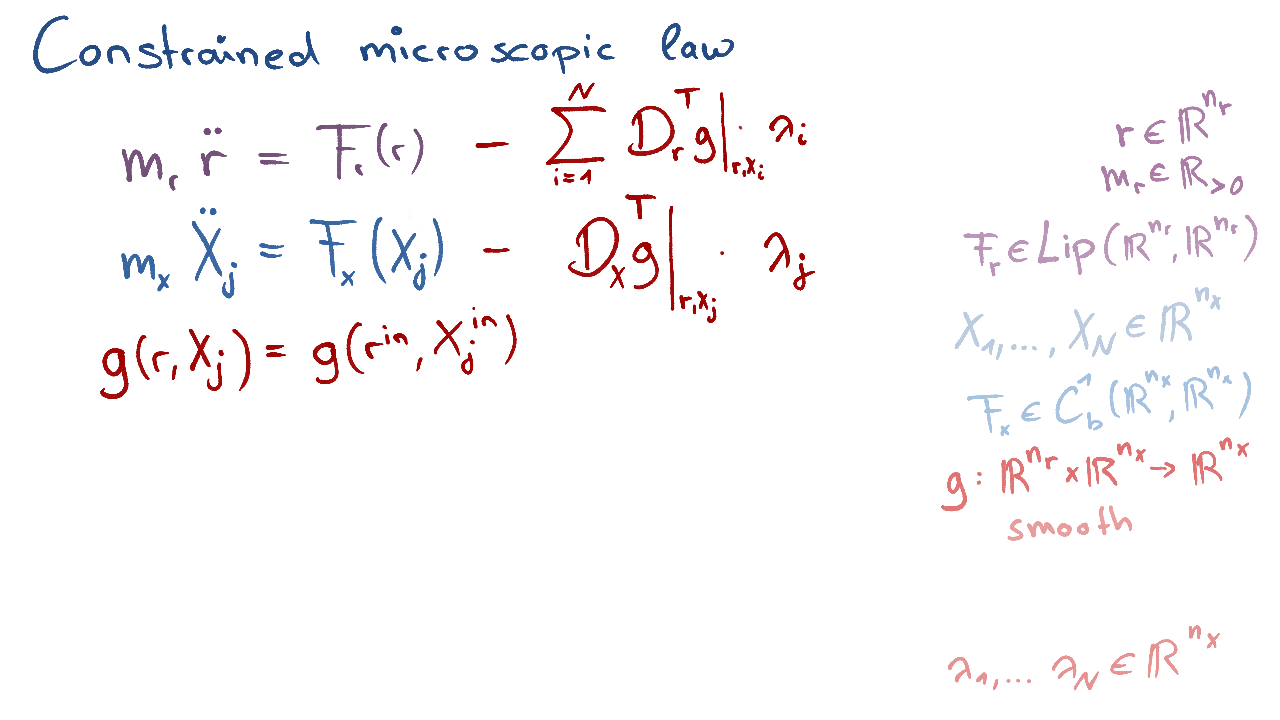 Constrained microscopic law
m_r r̈ = F_r(r) − ∑_{i=1}^{N} D_r^T g|_{r,X_i} · λ_i
m_x Ẍ_j = F_x(X_j) − D_x^T g|_{r,X_j} · λ_j
g(r, X_j) = g(r^{in}, X_j^{in})
r ∈ ℝ^{n_r}
m_r ∈ ℝ_{>0}
F_r ∈ Lip(ℝ^{n_r}, ℝ^{n_r})
X_1, ..., X_N ∈ ℝ^{n_x}
F_x ∈ C_b^1(ℝ^{n_x}, ℝ^{n_x})
g : ℝ^{n_r} × ℝ^{n_x} → ℝ^{n_x}
smooth
λ_1, ... λ_N ∈ ℝ^{n_x}